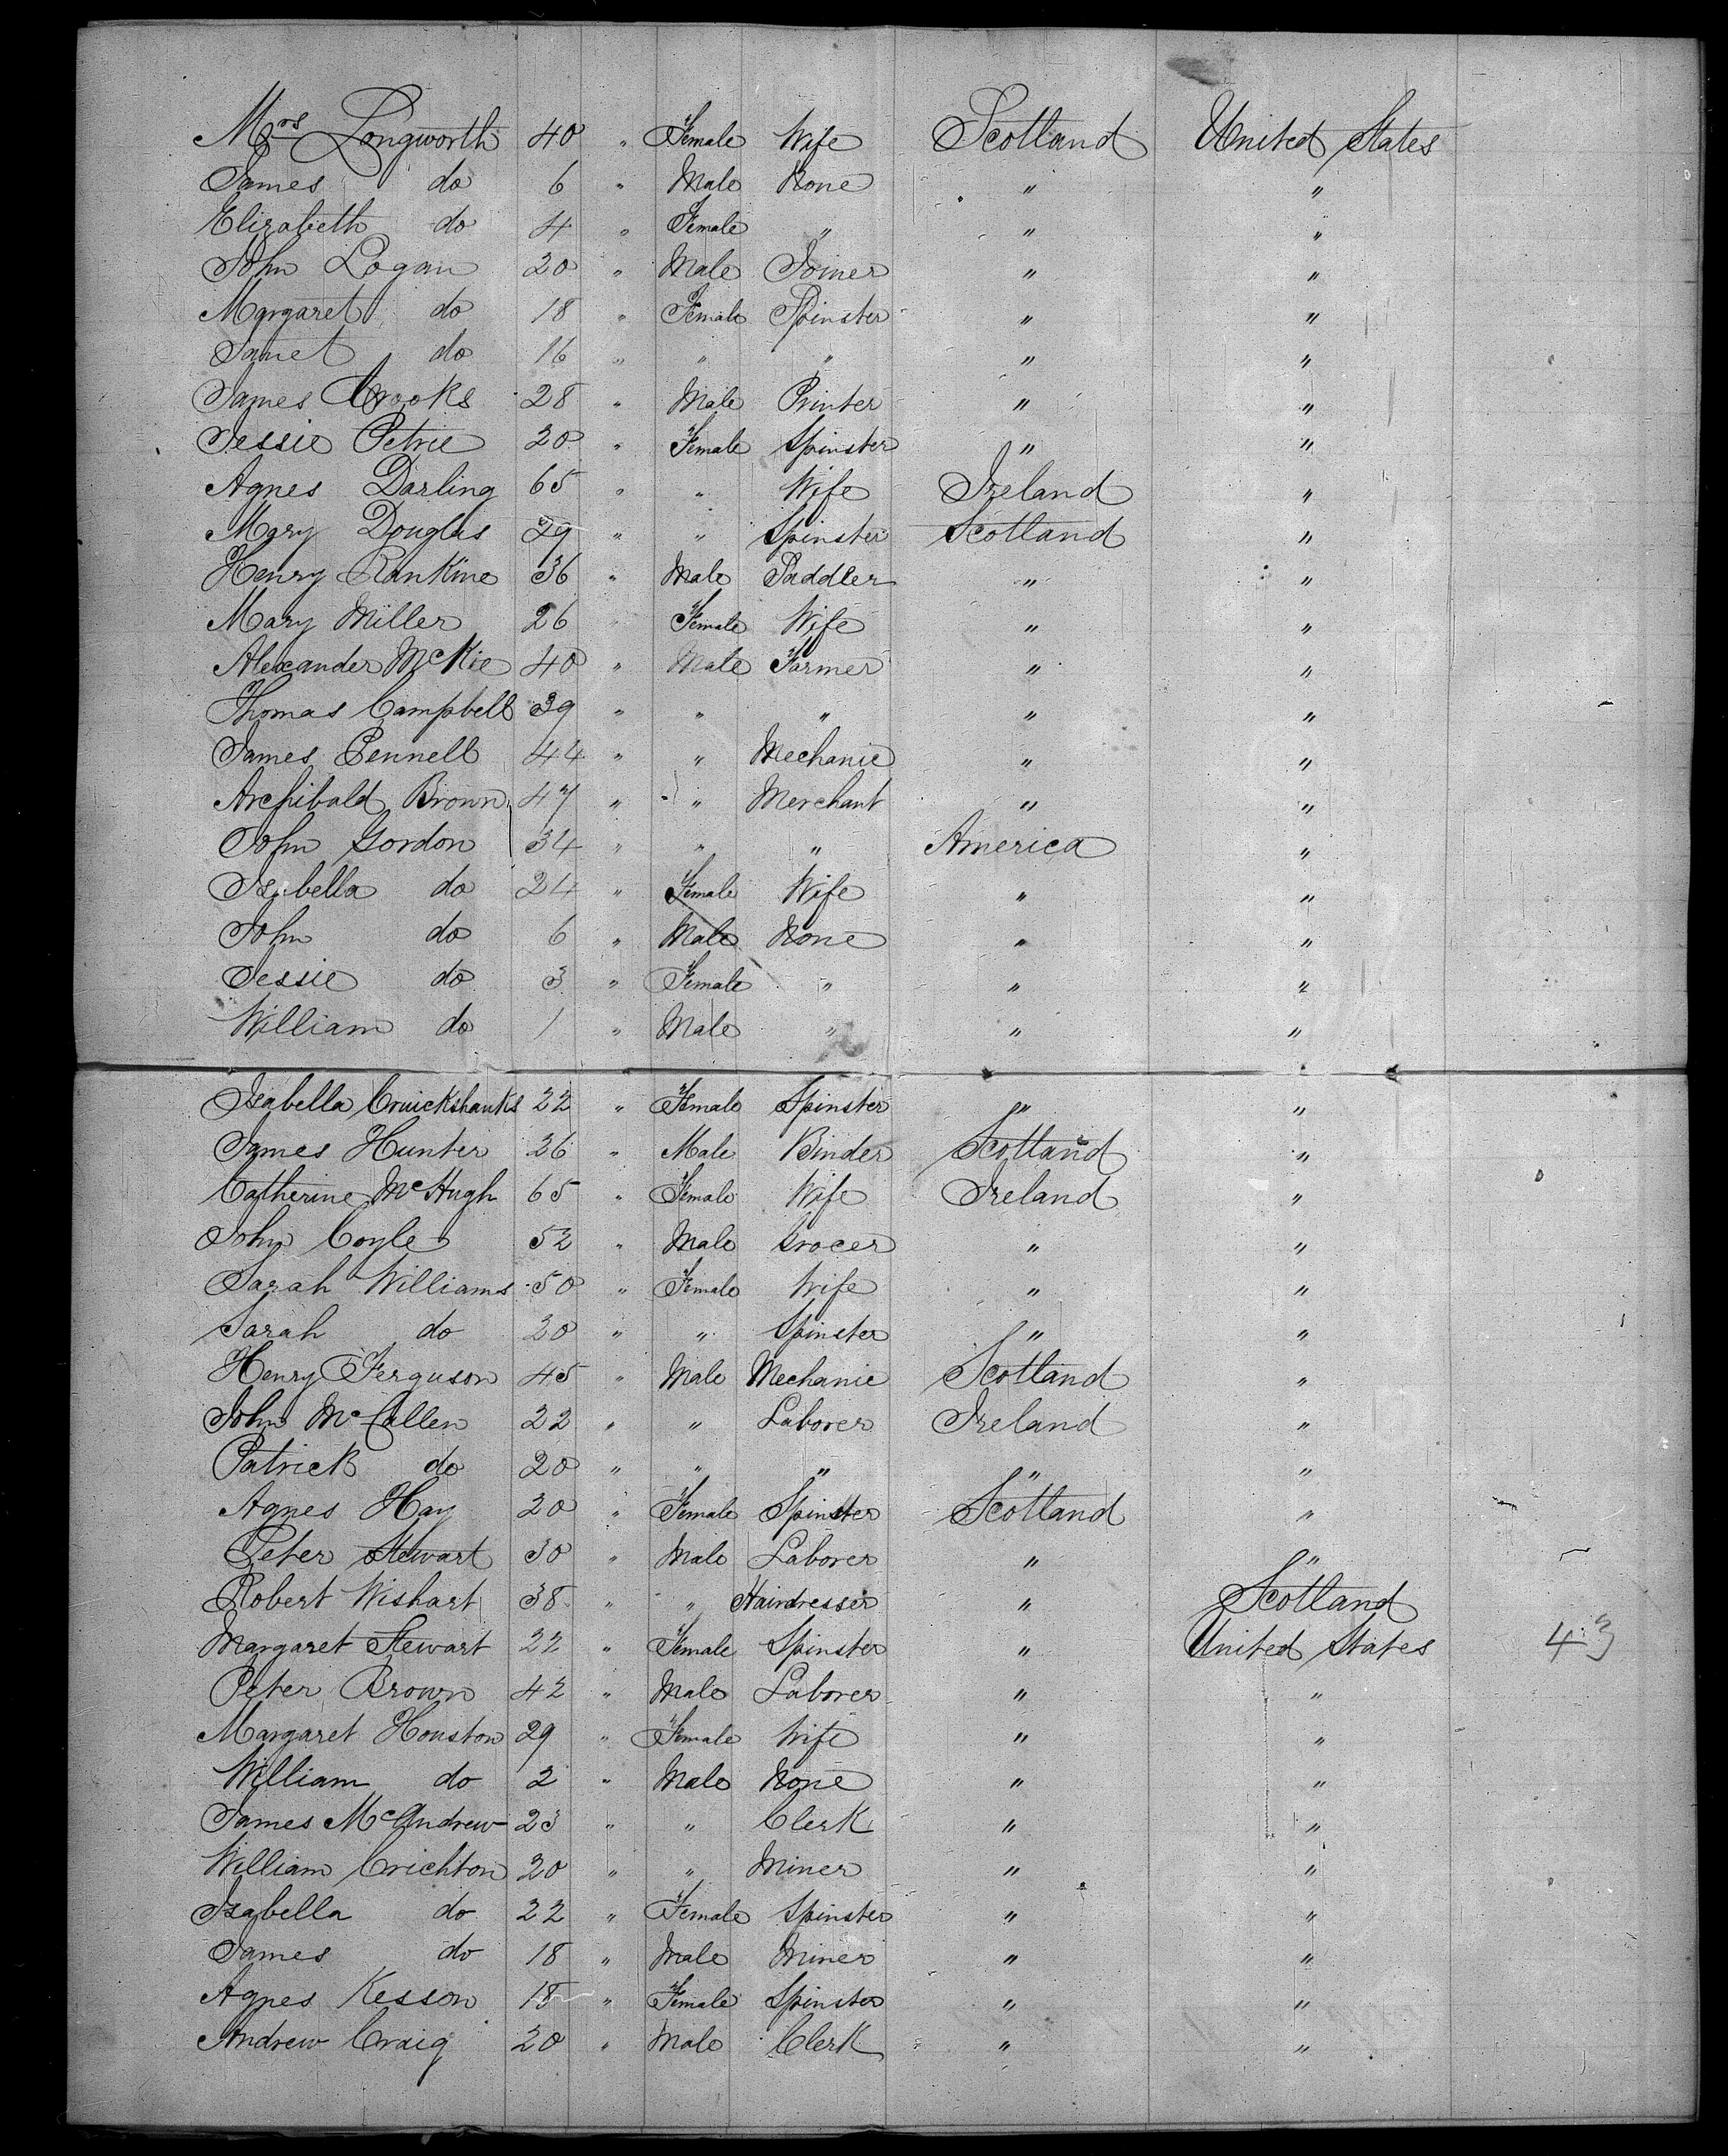 Mrs Longworth 40 " Female Wife Scotland United States
James do 6 " Male None " "
Elizabeth do 4 " Female " " "
John Logan 20 " Male Joiner " "
Margaret do 18 " Female Spinster " "
Janet do 16 " " " " "
James Crooks 28 " Male Printer " "
Jessie Petrie 20 " Female Spinster " "
Agnes Darling 65 " " Wife Ireland "
Mary Douglas 29 " " Spinster Scotland "
Henry Rankine 36 " Male Saddler " "
Mary Miller 26 " Female Wife " "
Alexander McKie 40 " Male Farmer " "
Thomas Campbell 39 " " " " "
James Pennell 44 " " Mechanic " "
Archibald Brown 47 " " Merchant " "
John Gordon 34 " " " America "
Isabella do 24 " Female Wife " "
John do 6 " Male None " "
Jessie do 3 " Female " " "
William do 1 " Male " " "
Isabella Cruickshanks 22 " Female Spinster " "
James Hunter 26 " Male Binder Scotland "
Catherine McHugh 65 " Female Wife Ireland "
John Coyle 52 " Male Grocer " "
Sarah Williams 50 " Female Wife " "
Sarah do 20 " " Spinster " "
Henry Ferguson 45 " Male Mechanic Scotland "
John McCallen 22 " " Laborer Ireland "
Patrick do 20 " " " " "
Agnes Hay 20 " Female Spinster Scotland "
Peter Stewart 30 " Male Laborer " "
Robert Wishart 38 " " Hairdresser " Scotland
Margaret Stewart 22 " Female Spinster " United States 43
Peter Brown 42 " Male Laborer " "
Margaret Houston 29 " Female Wife " "
William do 2 " Male None " "
James McAndrew 23 " " Clerk " "
William Crichton 20 " " Miner " "
Isabella do 22 " Female Spinster " "
James do 18 " Male Miner " "
Agnes Kesson 18 " Female Spinster " "
Andrew Craig 20 " Male Clerk " "